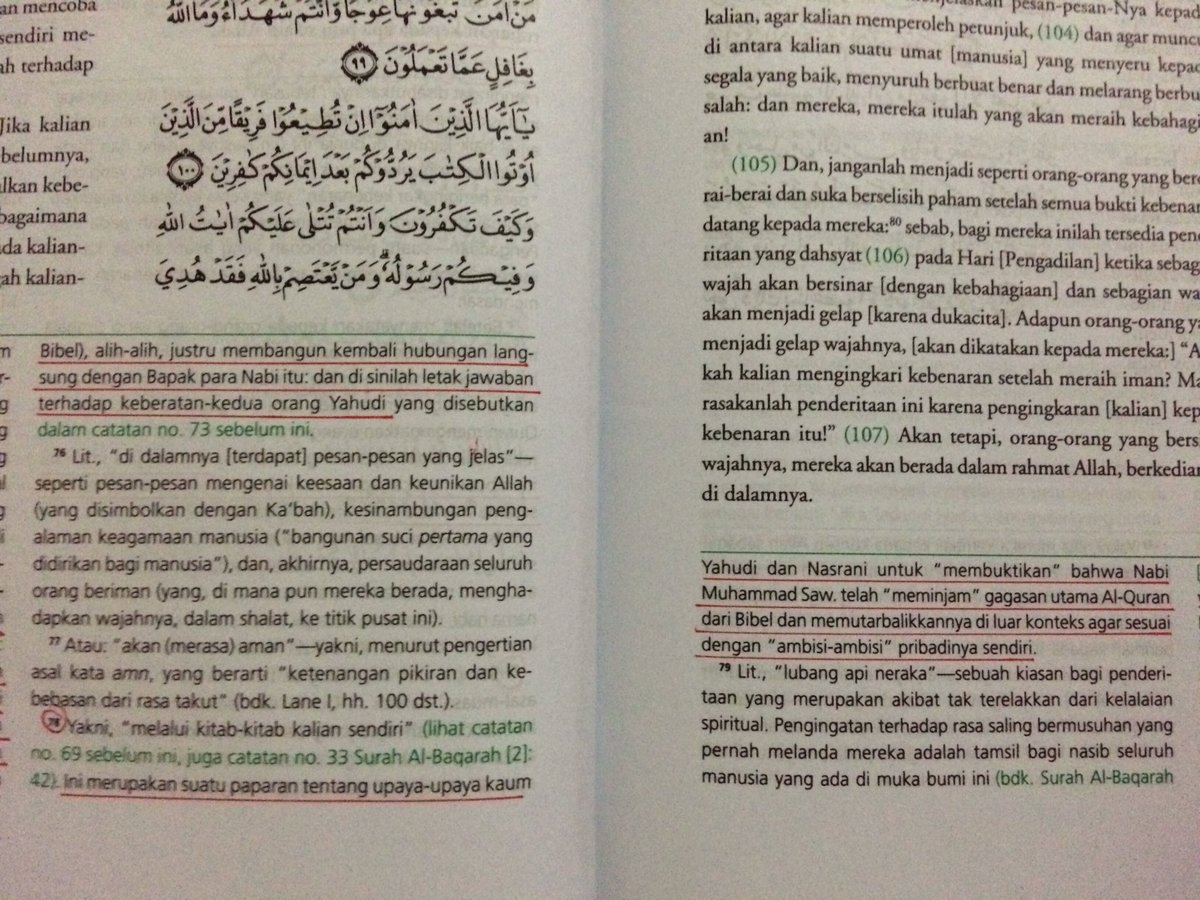 an mencoba
sendiri me-
ah terhadap
Jika kalian
belumnya,
alkan kebe-
bagaimana
da kalian-
gah kalian-
مَنْ اٰمَنَ تَبْغُوْنَهَا عِوَجًا وَّاَنْتُمْ شُهَدَاۤءُ وَمَا اللّٰهُ
بِغَافِلٍ عَمَّا تَعْمَلُوْنَ ٩٩
يٰٓاَيُّهَا الَّذِيْنَ اٰمَنُوْٓا اِنْ تُطِيْعُوْا فَرِيْقًا مِّنَ الَّذِيْنَ
اُوْتُوا الْكِتٰبَ يَرُدُّوْكُمْ بَعْدَ اِيْمَانِكُمْ كٰفِرِيْنَ ١٠٠
وَكَيْفَ تَكْفُرُوْنَ وَاَنْتُمْ تُتْلٰى عَلَيْكُمْ اٰيٰتُ اللّٰهِ
وَفِيْكُمْ رَسُوْلُهٗ ۗ وَمَنْ يَّعْتَصِمْ بِاللّٰهِ فَقَدْ هُدِيَ
Bibel), alih-alih, justru membangun kembali hubungan lang-
sung dengan Bapak para Nabi itu: dan di sinilah letak jawaban
terhadap keberatan-kedua orang Yahudi yang disebutkan
dalam catatan no. 73 sebelum ini.
76 Lit., “di dalamnya [terdapat] pesan-pesan yang jelas”—
seperti pesan-pesan mengenai keesaan dan keunikan Allah
(yang disimbolkan dengan Ka‘bah), kesinambungan peng-
alaman keagamaan manusia (“bangunan suci pertama yang
didirikan bagi manusia”), dan, akhirnya, persaudaraan seluruh
orang beriman (yang, di mana pun mereka berada, mengha-
dapkan wajahnya, dalam shalat, ke titik pusat ini).
77 Atau: “akan (merasa) aman”—yakni, menurut pengertian
asal kata amn, yang berarti “ketenangan pikiran dan ke-
bebasan dari rasa takut” (bdk. Lane I, hh. 100 dst.).
78 Yakni, “melalui kitab-kitab kalian sendiri” (lihat catatan
no. 69 sebelum ini, juga catatan no. 33 Surah Al-Baqarah [2]:
42). Ini merupakan suatu paparan tentang upaya-upaya kaum
menjelaskan pesan-pesan-Nya kepad
kalian, agar kalian memperoleh petunjuk, (104) dan agar muncu
di antara kalian suatu umat [manusia] yang menyeru kepad
segala yang baik, menyuruh berbuat benar dan melarang berbu
salah: dan mereka, mereka itulah yang akan meraih kebahagi
an!
(105) Dan, janganlah menjadi seperti orang-orang yang berc
rai-berai dan suka berselisih paham setelah semua bukti kebenar
datang kepada mereka:80 sebab, bagi mereka inilah tersedia pend
ritaan yang dahsyat (106) pada Hari [Pengadilan] ketika sebag
wajah akan bersinar [dengan kebahagiaan] dan sebagian wa
akan menjadi gelap [karena dukacita]. Adapun orang-orang ya
menjadi gelap wajahnya, [akan dikatakan kepada mereka:] “A
kah kalian mengingkari kebenaran setelah meraih iman? Ma
rasakanlah penderitaan ini karena pengingkaran [kalian] kep
kebenaran itu!” (107) Akan tetapi, orang-orang yang bersi
wajahnya, mereka akan berada dalam rahmat Allah, berkedian
di dalamnya.
Yahudi dan Nasrani untuk “membuktikan” bahwa Nabi
Muhammad Saw. telah “meminjam” gagasan utama Al-Quran
dari Bibel dan memutarbalikkannya di luar konteks agar sesuai
dengan “ambisi-ambisi” pribadinya sendiri.
79 Lit., “lubang api neraka”—sebuah kiasan bagi penderi-
taan yang merupakan akibat tak terelakkan dari kelalaian
spiritual. Pengingatan terhadap rasa saling bermusuhan yang
pernah melanda mereka adalah tamsil bagi nasib seluruh
manusia yang ada di muka bumi ini (bdk. Surah Al-Baqarah